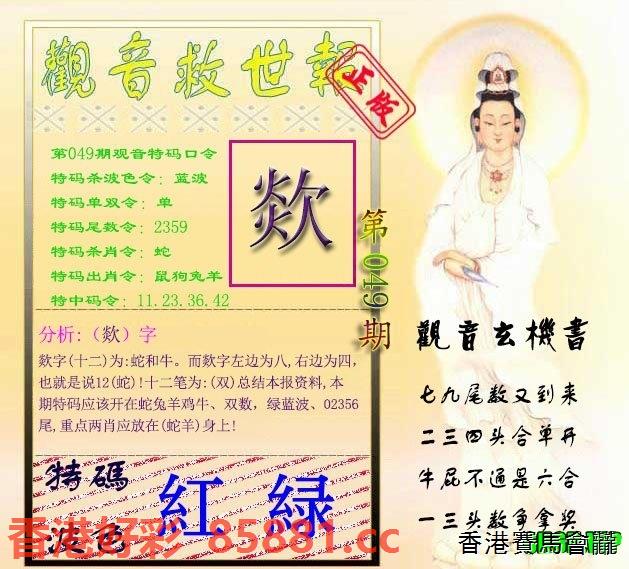 觀音救世報
正版
第049期观音特码口令
特码杀波色令：蓝波
特码单双令：单
特码尾数令：2359
特码杀肖令：蛇
特码出肖令：鼠狗兔羊
特中码令：11.23.36.42
欻
第049期
分析:（欻）字
欻字(十二)为:蛇和牛。而欻字左边为八,右边为四,
也就是说12(蛇)!十二笔为:(双)总结本报资料,本
期特码应该开在蛇兔羊鸡牛、双数，绿蓝波、02356
尾,重点两肖应放在(蛇羊)身上!
觀音玄機書
七九尾数又到来
二三四头合单开
牛屁不通是六合
一三头数争拿奖
特碼
波色
紅 緑
香港好彩 85881.cc
香港賽馬會